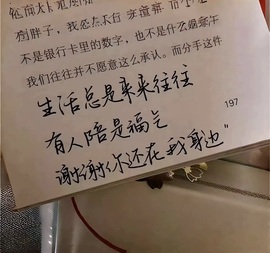 不是银行卡里的数字，也不是什么
我们往往并不愿意这么承认。而分手这件
197
生活总是来来往往
有人陪是福气
谢谢你还在我身边"